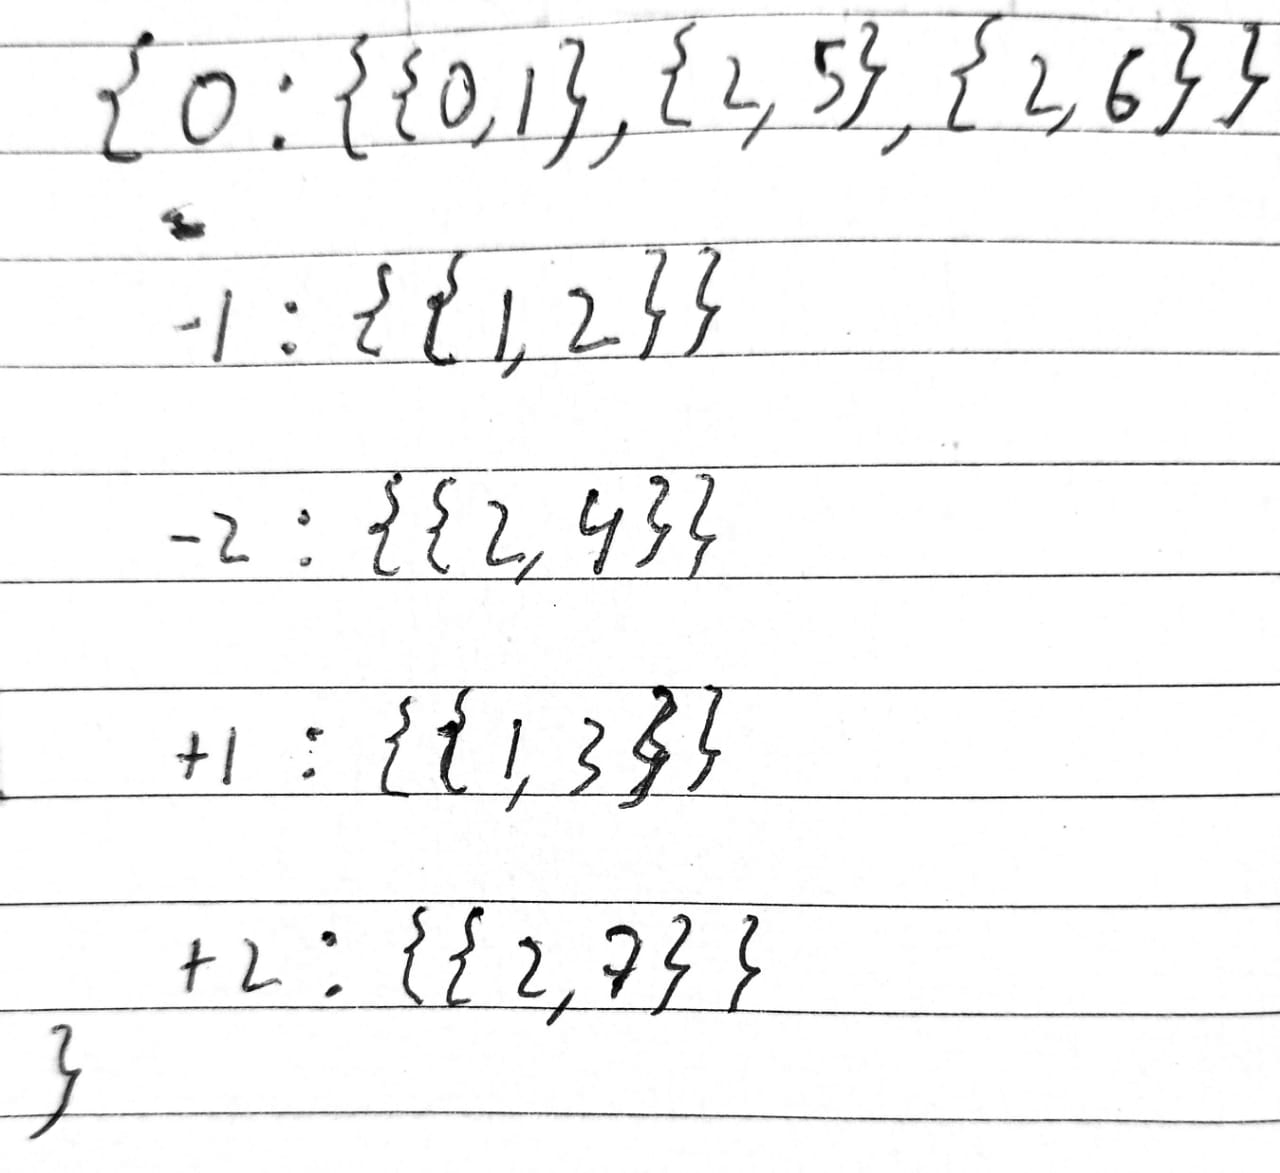 { 0 : {{0,1}, {2, 5}, { 2, 6}}
-1 : {{1, 2}}
-2 : {{2, 4}}
+1 : {{1, 3}}
+2 : {{2, 7}}
}